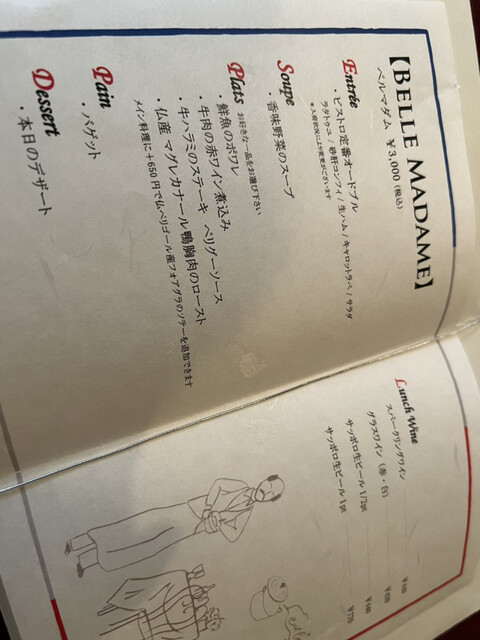 【BELLE MADAME】
ベルマダム ¥3,000（税込）
Entrée
・ビストロ定番オードブル
ラタトゥユ / 砂肝コンフィ / 生ハム / キャロットラペ / サラダ
※入荷状況により変更がございます
Soupe
・香味野菜のスープ
Plats お好きな一品をお選び下さい
・鮮魚のポワレ
・牛肉の赤ワイン煮込み
・牛ハラミのステーキ ペリグーソース
・仏産 マグレカナール鴨胸肉のロースト
メイン料理に＋650円で仏ペリゴール産フォアグラのソテーを追加できます
Pain
・バゲット
Dessert
・本日のデザート
Lunch Wine
スパークリングワイン
グラスワイン（赤・白）
サッポロ生ビール 1/2pt
サッポロ生ビール 1pt